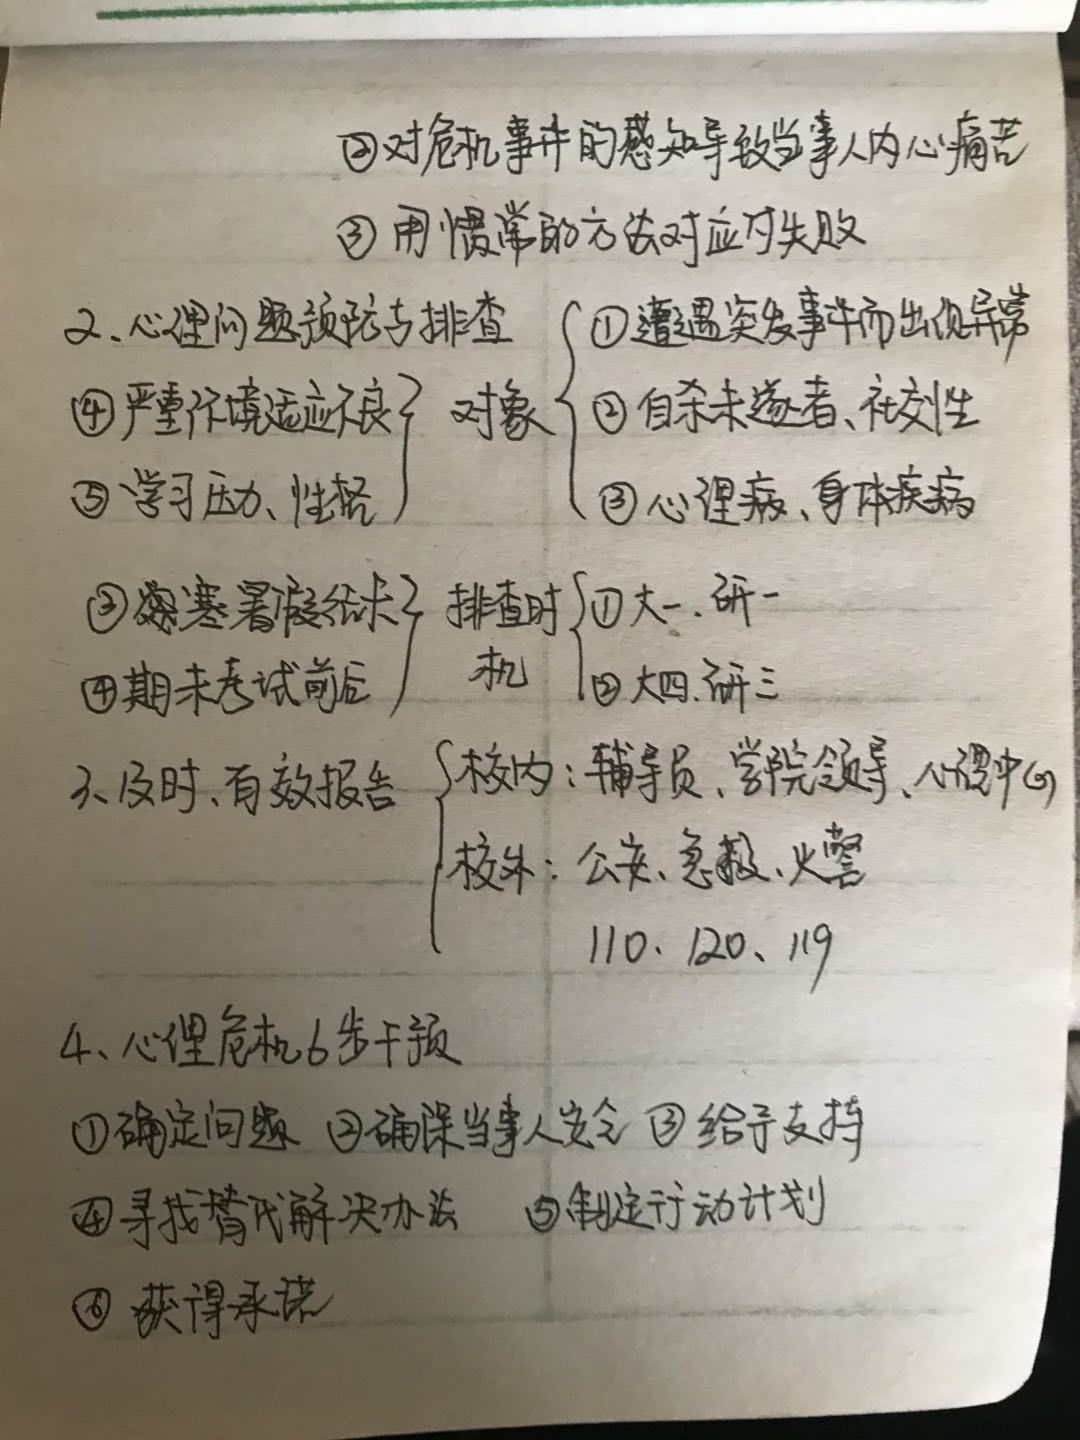 ②对危机事件的感知导致当事人内心痛苦
③用惯常的方法对应付失败
2、心理问题预防与排查
①遭遇突发事件而出现异常
④严重环境适应不良 对象 ②自杀未遂者、社交性
⑤学习压力、性格 ③心理病、身体疾病
③寒暑假结束 排查时 ①大一.研一
④期末考试前后 机 ②大四.研三
3、及时、有效报告 校内：辅导员、学院领导、心理中心
校外：公安、急救、火警
110、120、119
4、心理危机6步干预
①确定问题 ②确保当事人安全 ③给予支持
④寻找替代解决办法 ⑤制定行动计划
⑥获得承诺